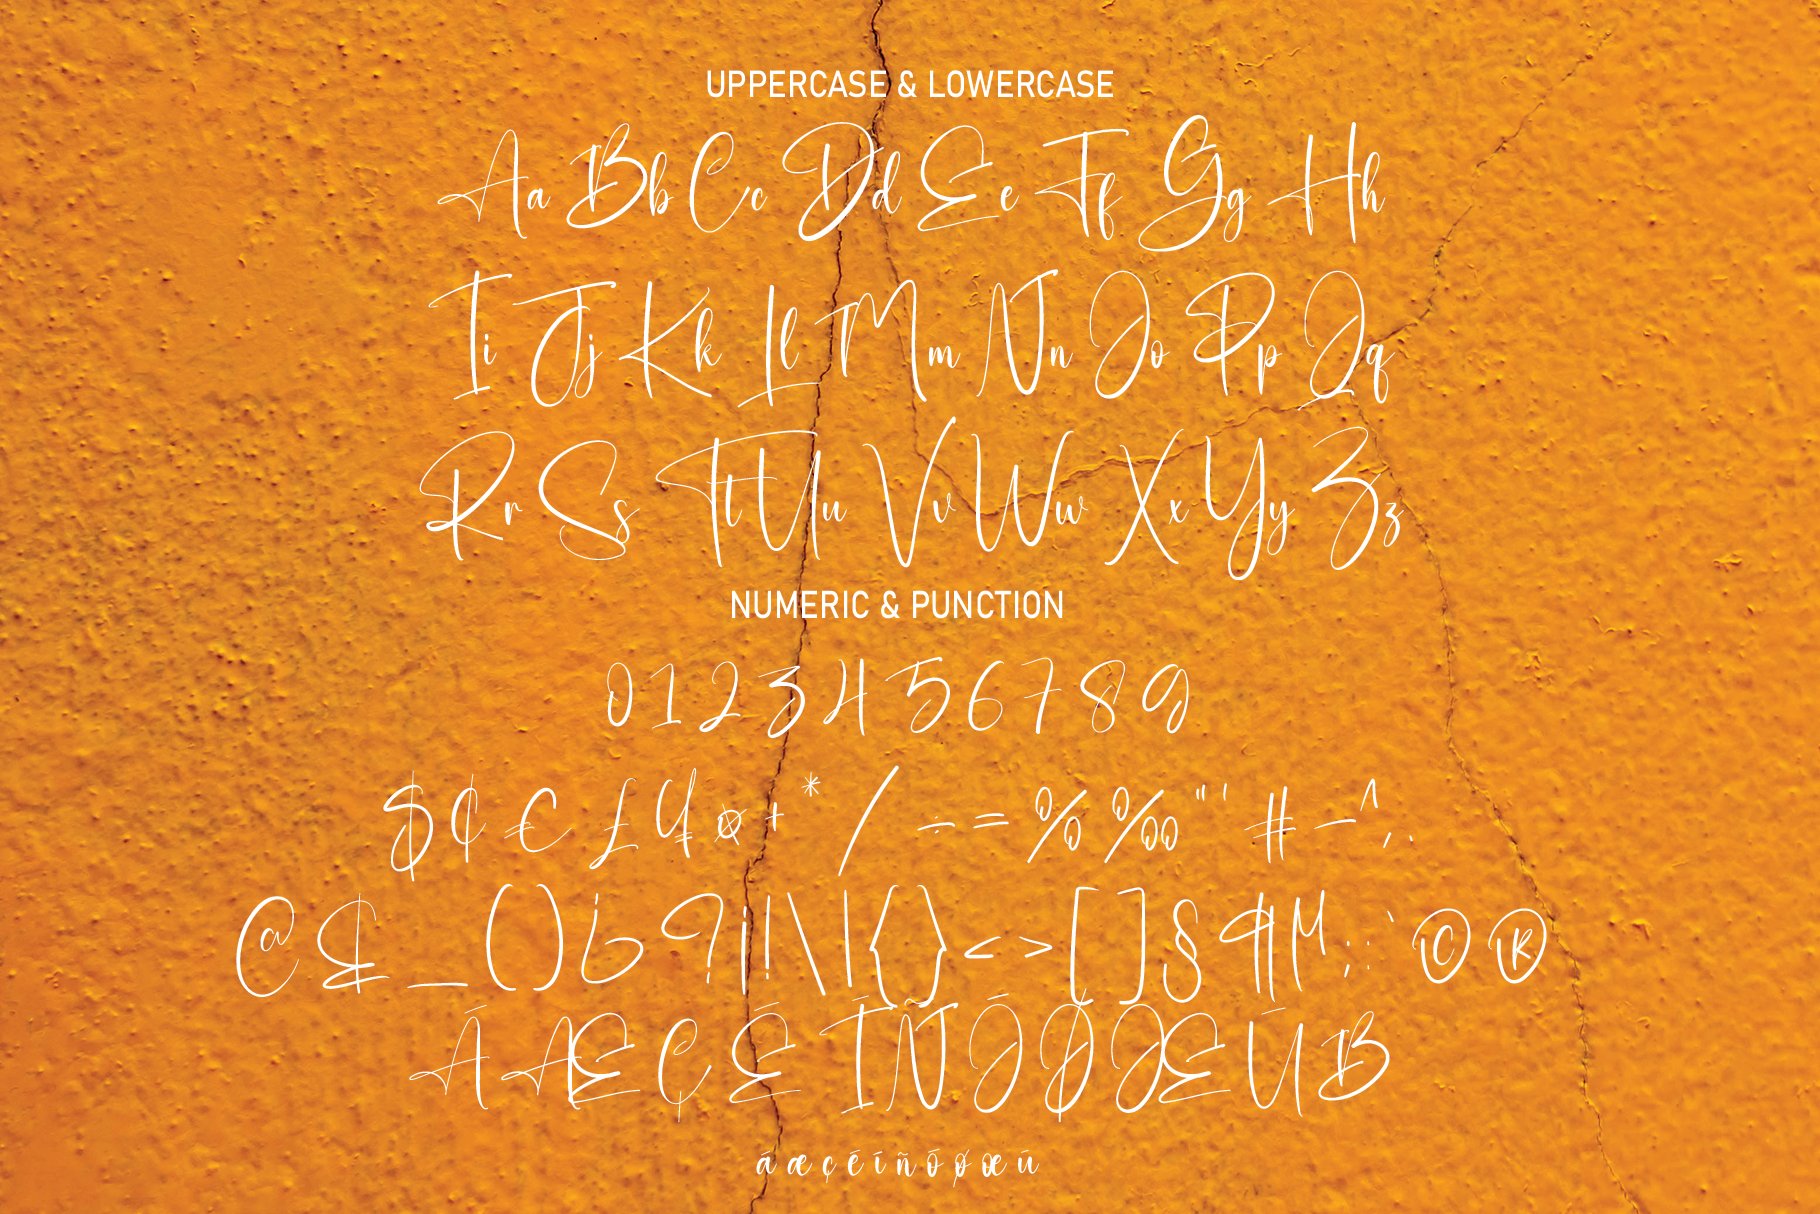 UPPERCASE & LOWERCASE
Aa Bb Cc Dd Ee Ff Gg Hh
Ii Jj Kk Ll Mm Nn Oo Pp Qq
Rr Ss Tt Uu Vv Ww Xx Yy Zz
NUMERIC & PUNCTION
0 1 2 3 4 5 6 7 8 9
$ ¢ € £ ¥ ¤ + * / ÷ = % ‰ " ' # – ^ , .
@ & _ ( ) ¿ ? ¡ ! \ | { } < > [ ] § ¶ µ ; : ` © ®
Á Æ Ç É Í Ñ Ó Ø Œ Ú ß
á æ ç é í ñ ó ø œ ú